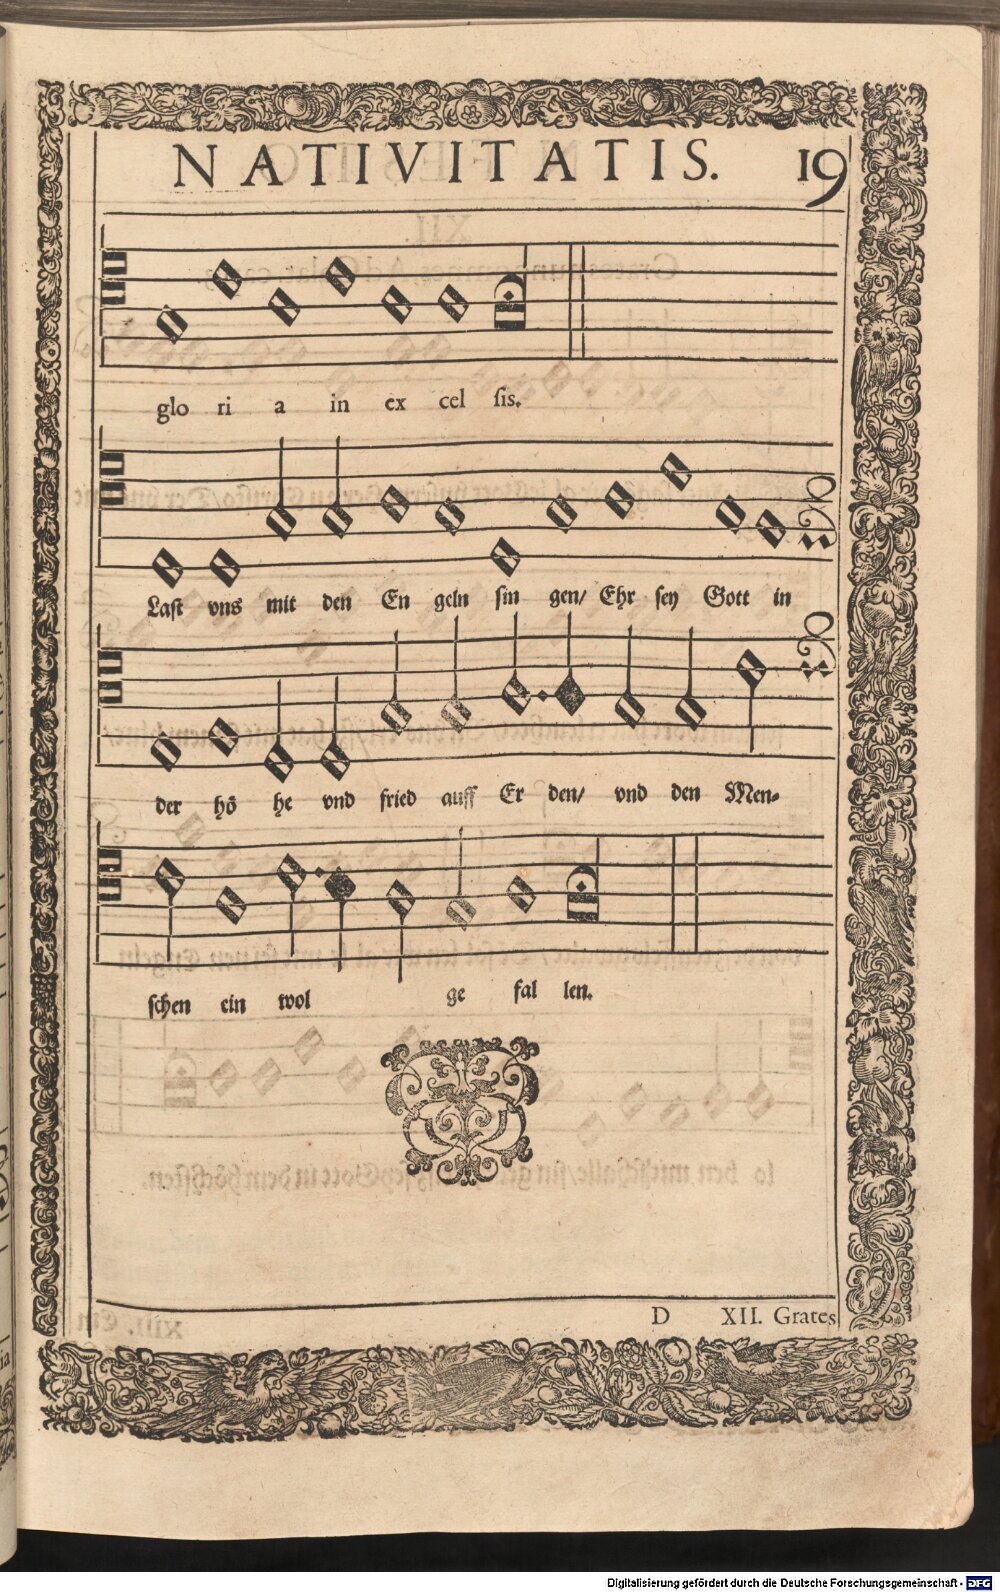 NATIVITATIS. 19
glo ri a in ex cel ſis.
Laſt vns mit den En geln ſin gen/ Ehr ſey Gott in
der hö he vnd fried auff Er den/ vnd den Men-
ſchen ein wol ge fal len.
D XII. Grates
Digitalisierung gefördert durch die Deutsche Forschungsgemeinschaft - DFG